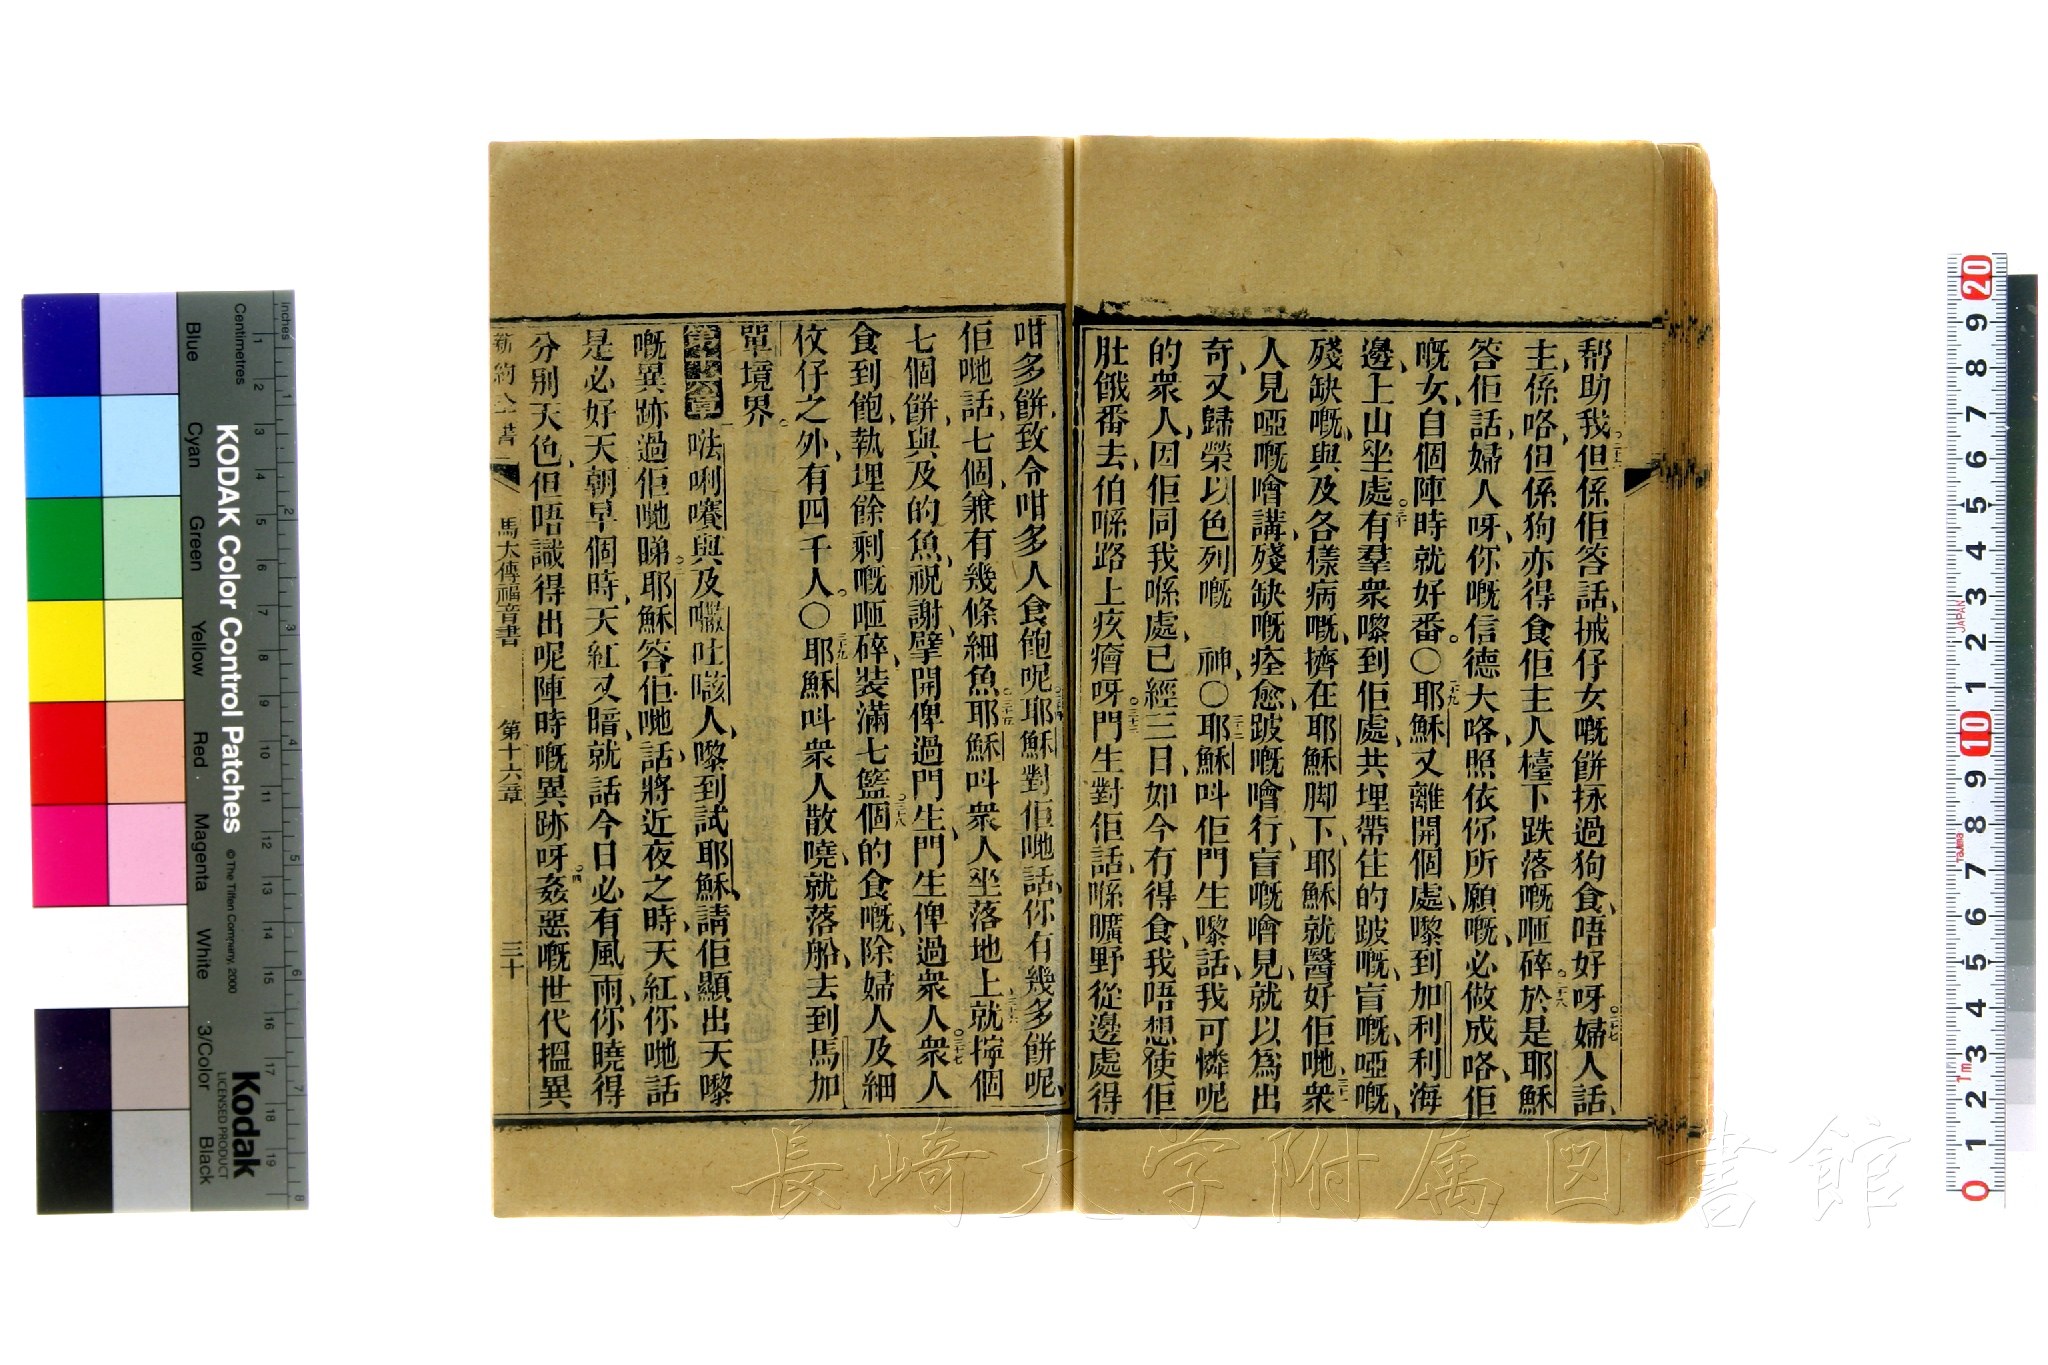 帮助我但係佢答話搣仔女嘅餅抹過狗食唔好呀婦人話
主係咯但係狗亦得食佢主人檯下跌落嘅咂碎於是耶穌
答佢話婦人呀你嘅信德大咯照依你所願嘅必做成咯佢
嘅女自個陣時就好番〇耶穌又離開個處嚟到加利利海
邊上山坐處有羣衆嚟到佢處共埋帶住的跛嘅盲嘅啞嘅
殘缺嘅與及各樣病嘅擠在耶穌脚下耶穌就醫好佢哋衆
人見啞嘅噲講殘缺嘅痊愈跛嘅噲行盲嘅噲見就以爲出
奇又歸榮以色列嘅 神〇耶穌呌佢門生嚟話我可憐呢
的衆人因佢同我喺處已經三日如今冇得食我唔想使佢
肚餓番去伯喺路上疚癐呀門生對佢話喺曠野從邊處得
咁多餅致令咁多人食飽呢耶穌對佢哋話你有幾多餅呢
佢哋話七個兼有幾條細魚耶穌呌衆人坐落地上就擰個
七個餅與及的魚祝謝擘開俾過門生門生俾過衆人衆人
食到飽執埋餘剩嘅咂碎裝滿七籃個的食嘅除婦人及細
佼仔之外有四千人〇耶穌呌衆人散嘵就落船去到馬加
單境界
第十六章 𠵽唎㘔與及㘔吐𠸉人嚟到試耶穌請佢顯出天嚟
嘅異跡過佢哋睇耶穌答佢哋話將近夜之時天紅你哋話
是必好天朝早個時天紅又暗就話今日必有風雨你曉得
分别天色但唔識得出呢陣時嘅異跡呀姦惡嘅世代搵異
新約全書 馬太傳福音書 第十六章 三十
KODAK Color Control Patches
© The Tiffen Company, 2000
Kodak
LICENSED PRODUCT
Inches
Centimetres
Blue Cyan Green Yellow Red Magenta White 3/Color Black
長崎大学附属図書館
JAPAN